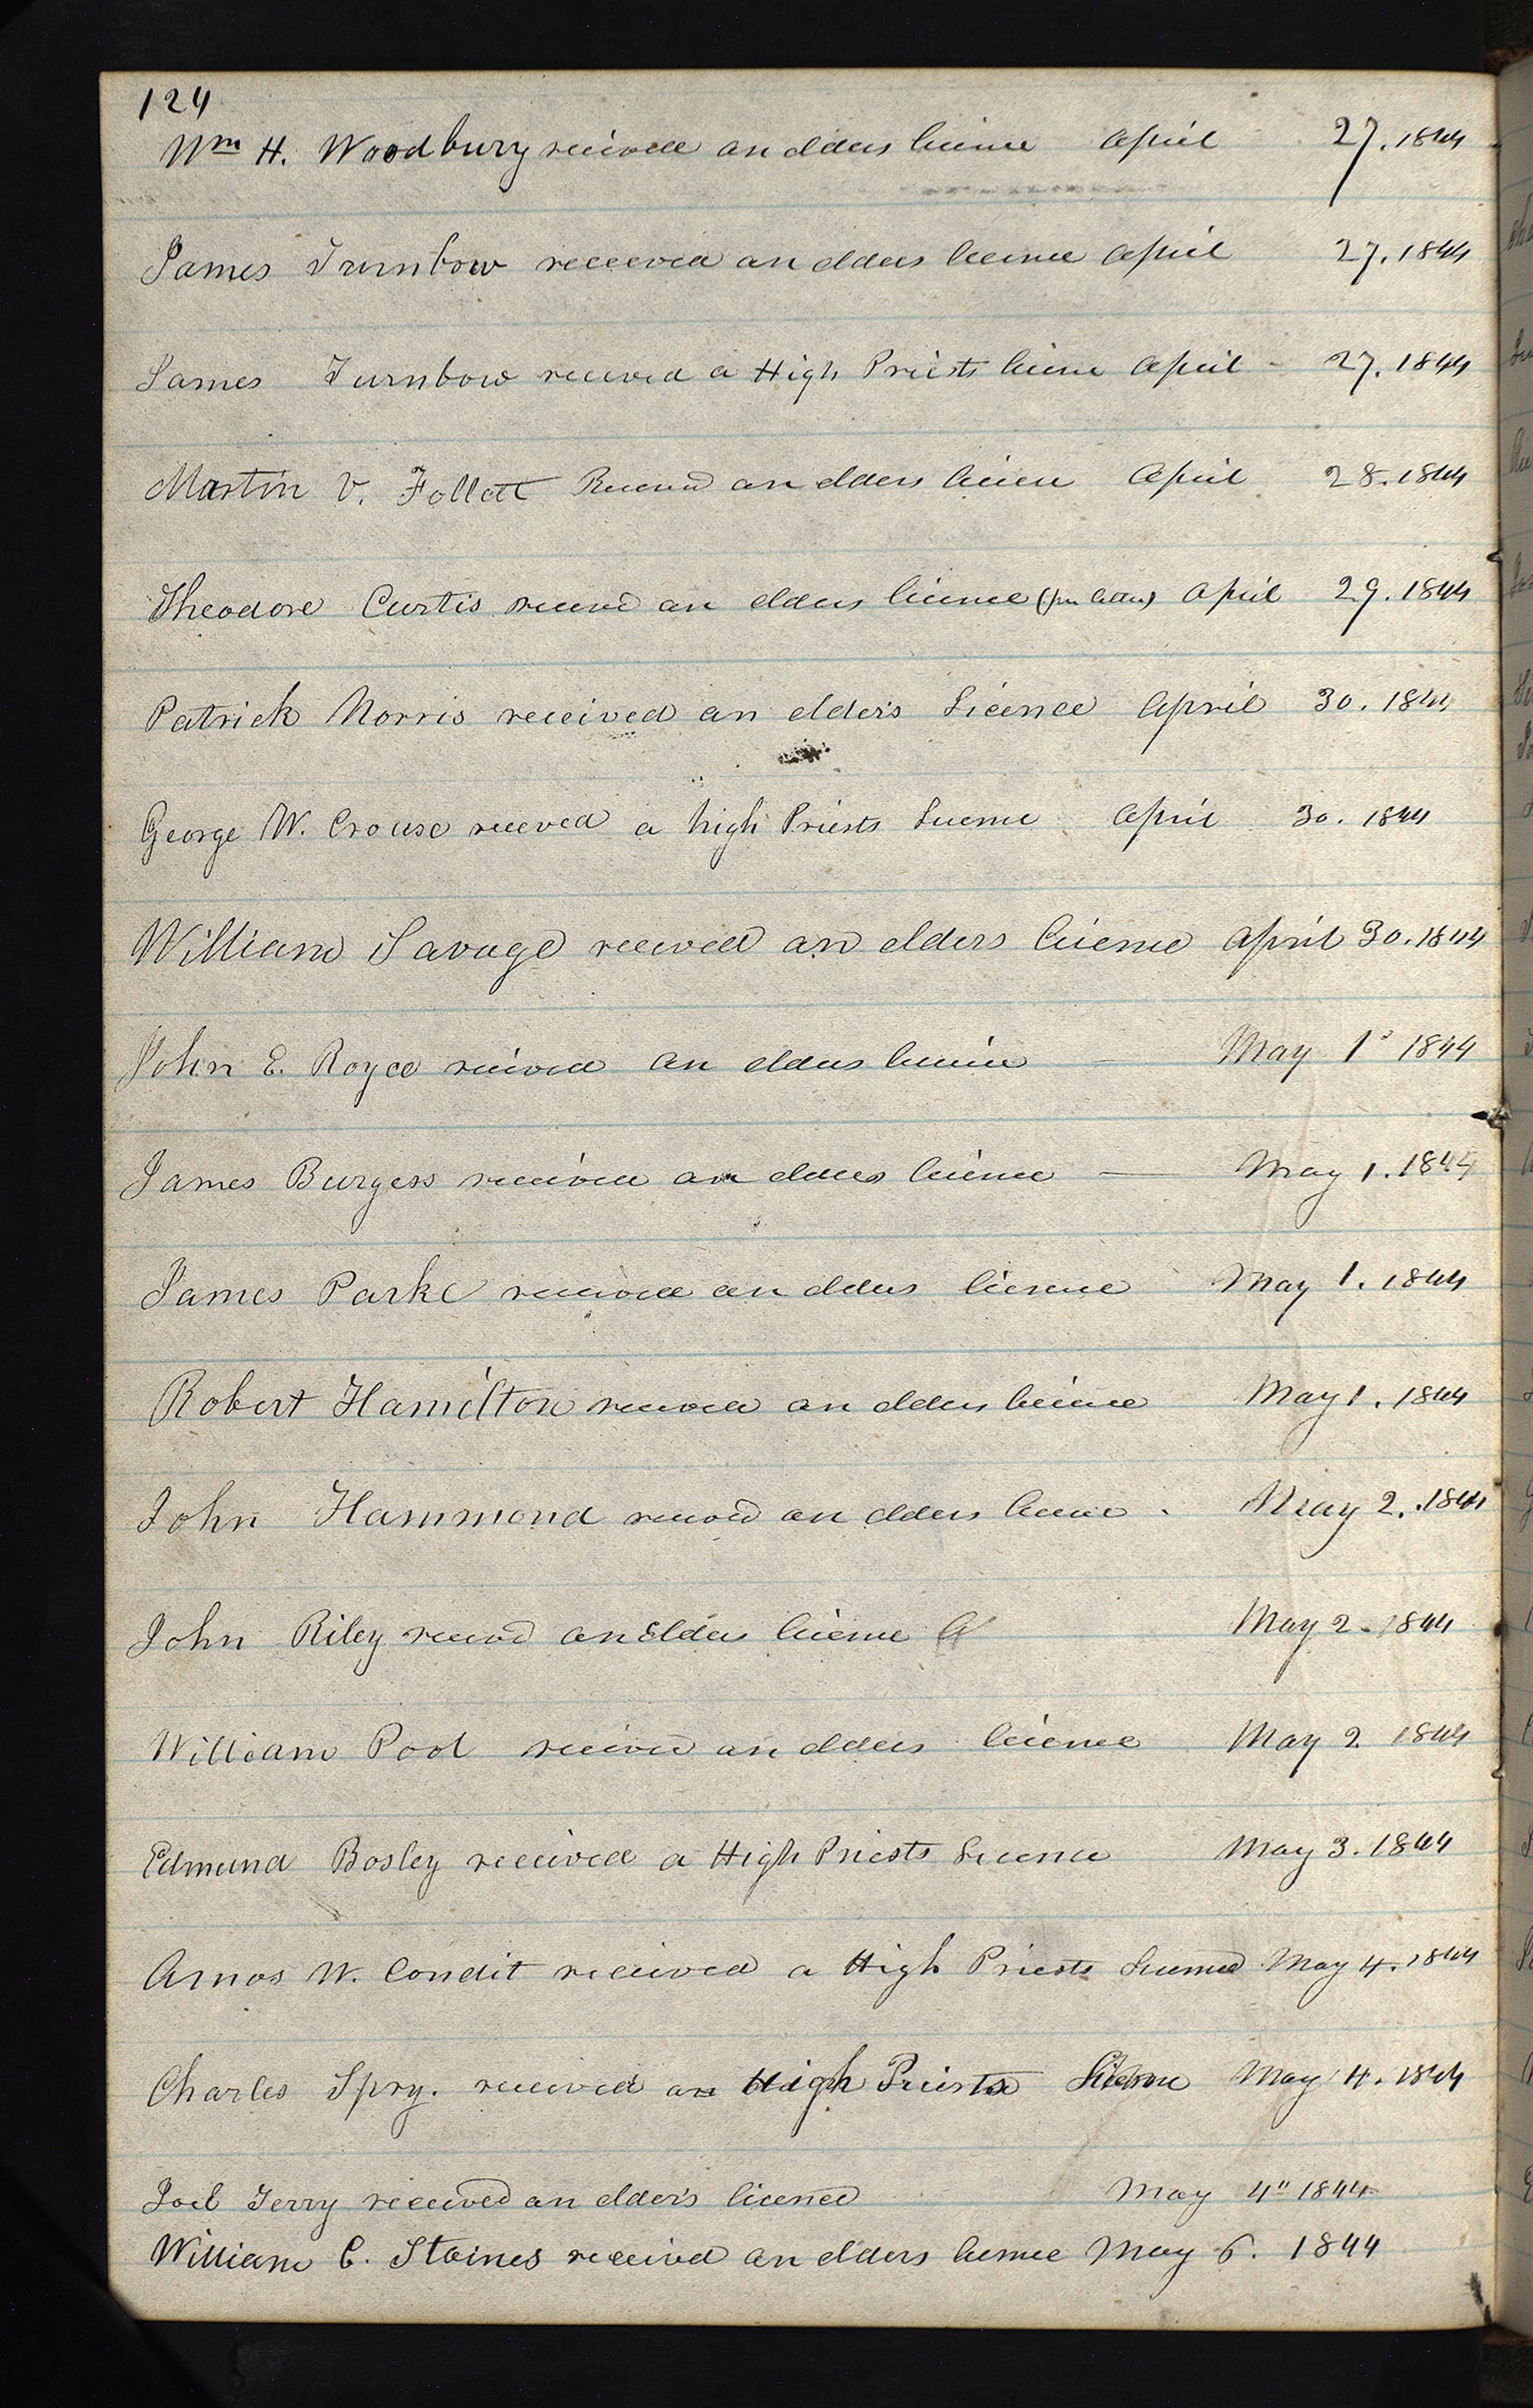 124
Wm H. Woodbury received an elders licence April 27. 1844
James Turnbow received an elders licence April 27. 1844
James Turnbow received a High Priests licence April - 27. 1844
Martin V. Follett Received an elders licence April 28. 1844
Theodore Curtis received an elders licence (per letter) April 29. 1844
Patrick Norris received an elder's Licence April 30. 1844
George W. Crouse received a high Priests Licence April 30. 1844
William Savage received an elders licence April 30. 1844
John E. Royce received an elders licence May 1s 1844
James Burgess received an elders licence — May 1. 1844
James Park received an elders licence May 1. 1844
Robert Hamilton received an elders licence May 1. 1844
John Hammond received an elders licence - May 2. 1844
John Riley received an Elders licence May 2. 1844
William Pool received an elders licence May 2 1844
Edmund Bosley received a High Priests Licence May 3. 1844
Amos W. Condit received a High Priests Licence May 4. 1844
Charles Spry. received an High Priests Licence May 4. 1844
Joel Terry received an elder's licence May 4" 1844
William C. Staines received an elders licence May 6. 1844